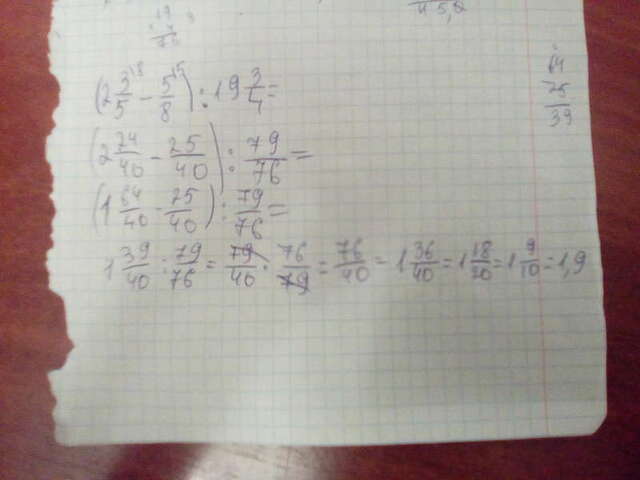 45,2
19
4
76
(2 3/5 ¹⁸ - 5/8 ¹⁵) : 19 3/4 =
(2 24/40 - 25/40) : 79/76 =
(1 64/40 - 25/40) : 79/76 =
1 39/40 : 79/76 = 79/40 · 76/79 = 76/40 = 1 36/40 = 1 18/20 = 1 9/10 = 1,9
64
25
39